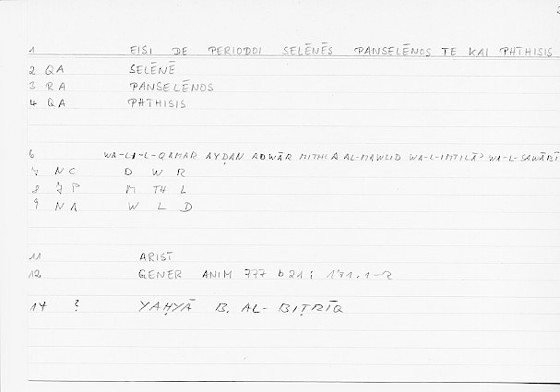 1 EISI DE PERIODOI SELĒNĒS PANSELĒNOS TE KAI PHTHISIS
2 QA SELĒNĒ
3 RA PANSELĒNOS
4 QA PHTHISIS
6 WA-LI-L-QAMAR AYḌAN ADWĀR MITHLA AL-MAWLID WA-L-IMTILĀʾ WA-L-SAWĀBĪ
7 NC D W R
8 JP M TH L
9 NA W L D
11 ARIST
12 GENER ANIM 777 b 21; 171, 1-2
14 ? YAḤYĀ B. AL-BIṬRĪQ